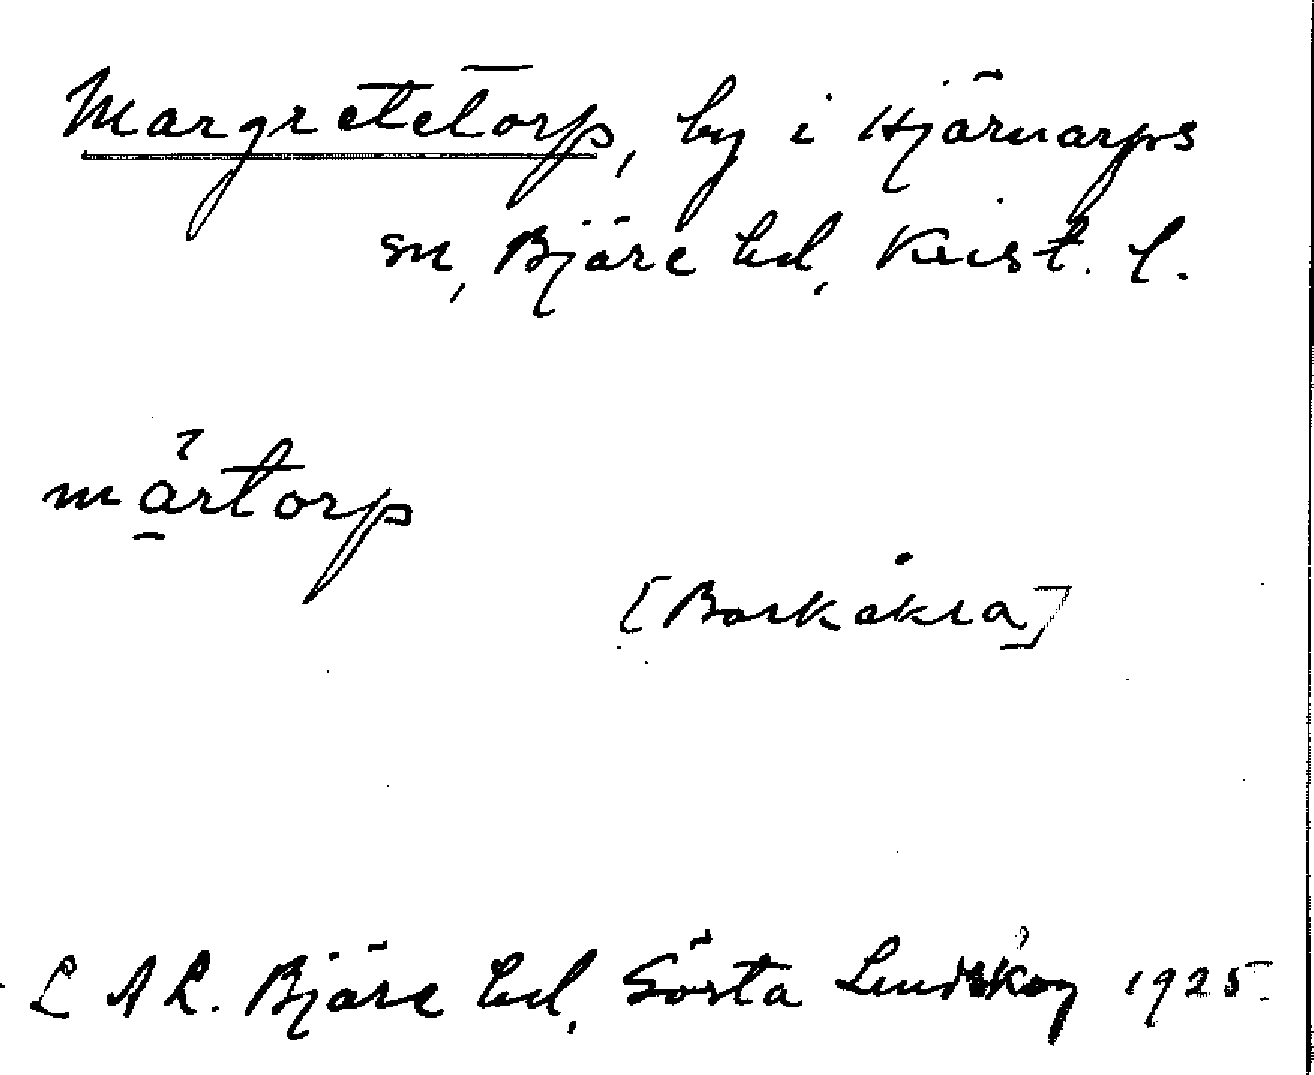 Margretetorp, by i Hjärnarps
sn, Bjäre hd, Krist. l.
martorp
[Barkåkra]
L A L. Bjäre hd, Gösta Lindskog 1925.